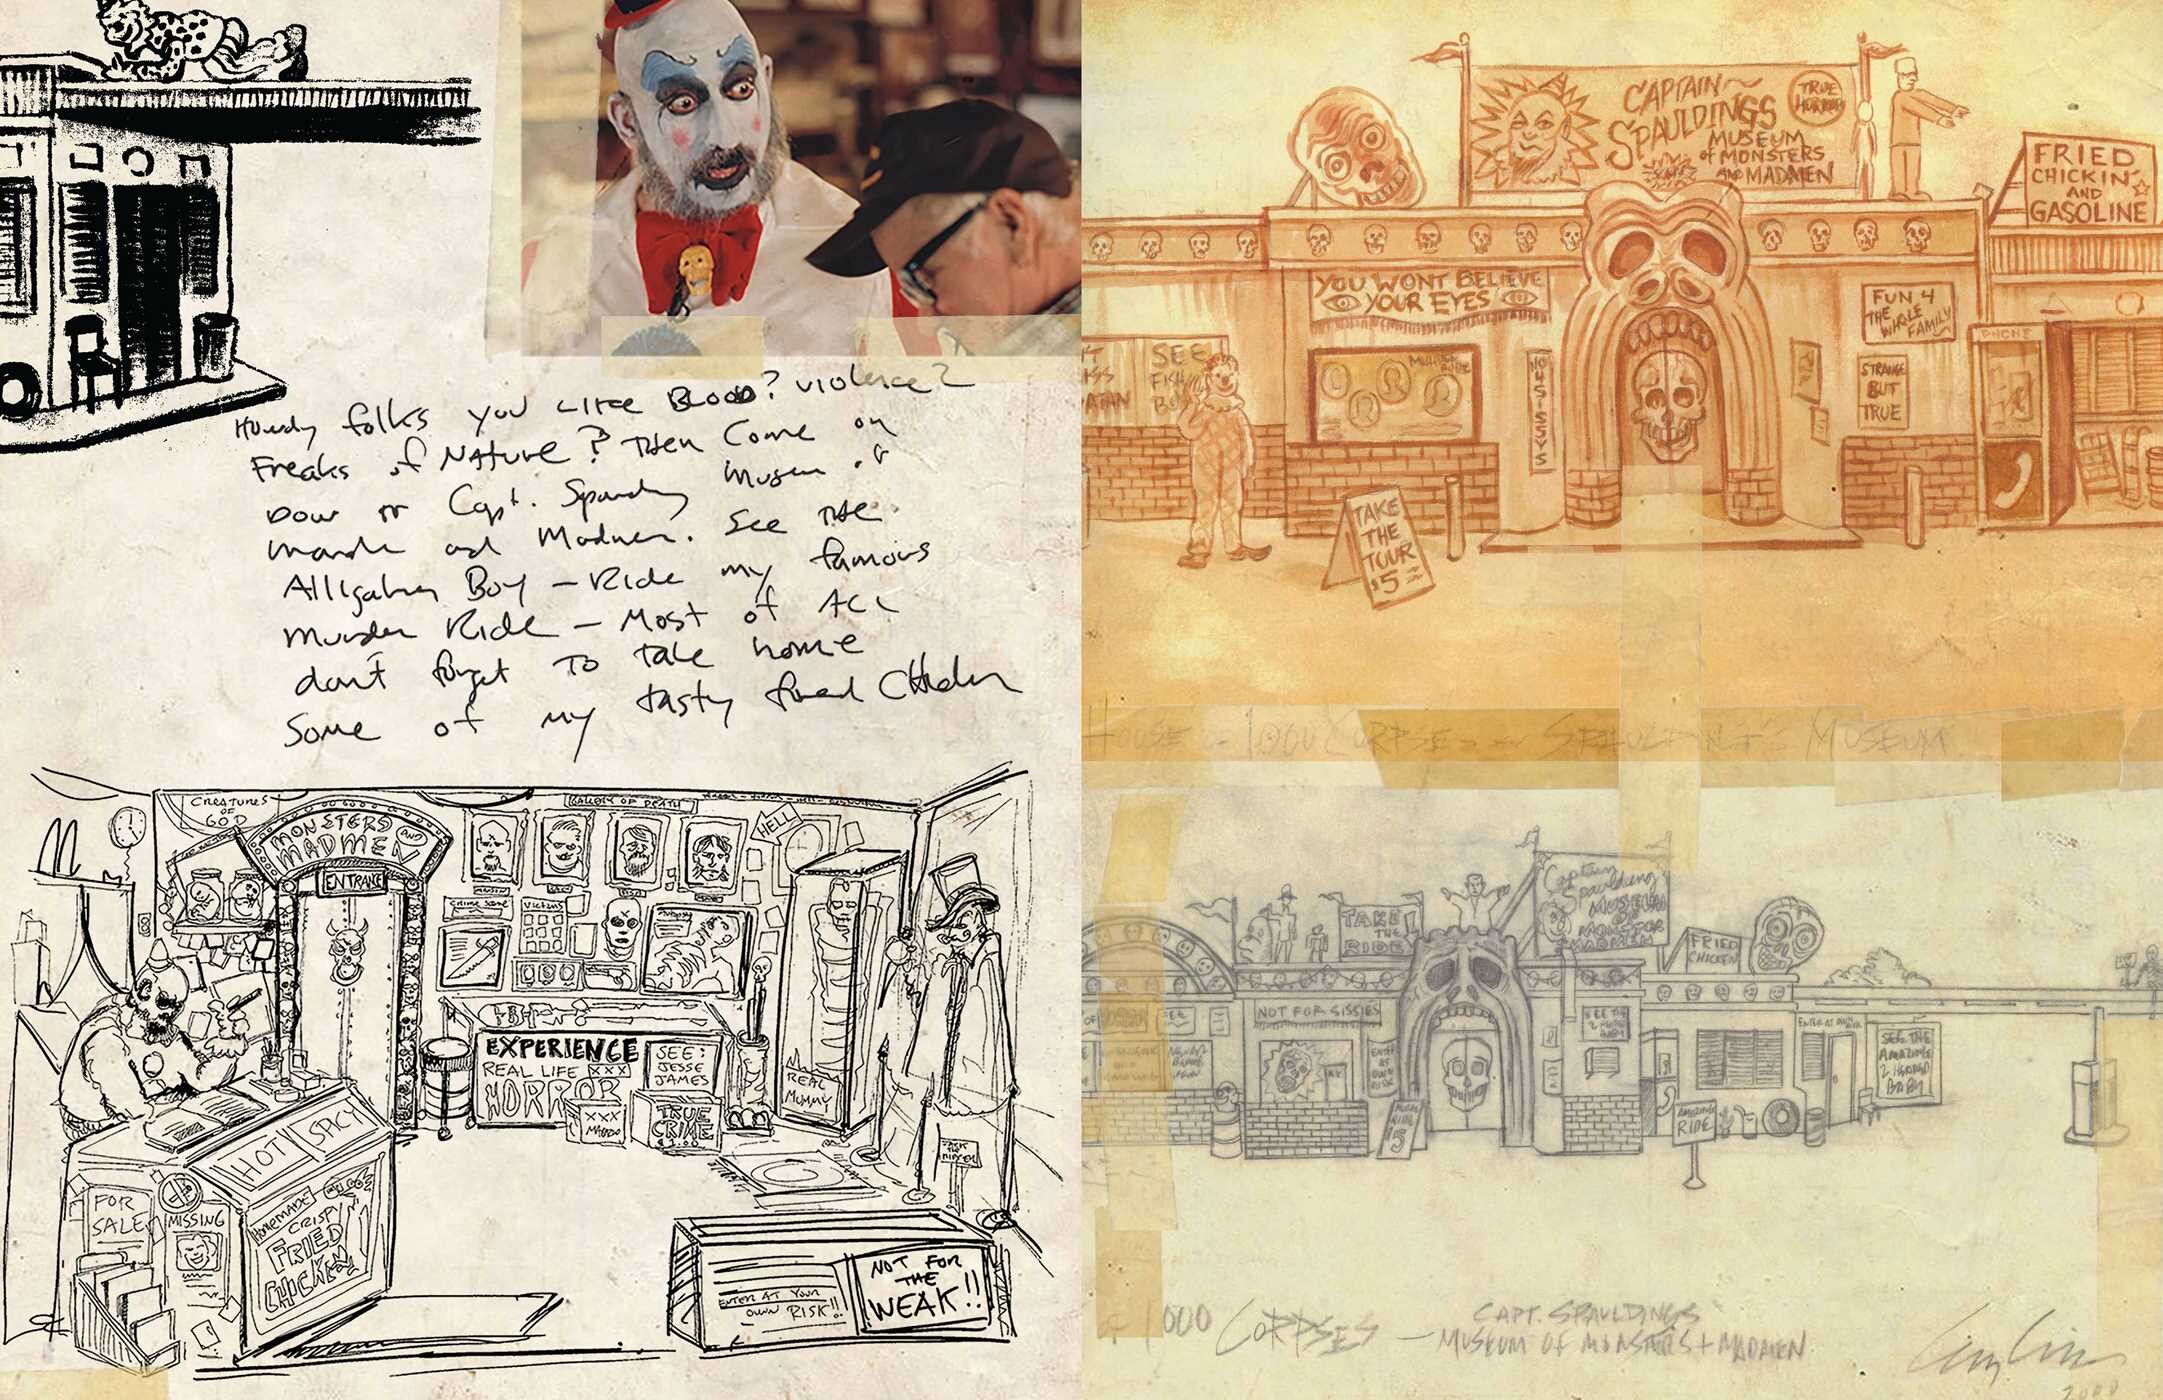 Howdy folks you like Blood? violence?
Freaks of Nature? Then Come on
Down to Capt. Spaulding Museum of
and Madmen. See the
Alligator Boy - Ride my famous
Murder Ride - Most of All
don't forget to take home
Some of my tasty fried Chicken
CREATURES
OF
GOD
MONSTERS AND
MADMEN
ENTRANCE
GALLERY OF DEATH
HELL
CRIME SCENE
VICTIMS
EXPERIENCE
REAL LIFE XXX
HORROR
SEE:
JESSE
JAMES
XXX
TRUE
CRIME
$1.00
REAL
MUMMY
HOT/SPICY
HOMEMADE
CRISPY
FRIED
CHICKEN
FOR
SALE
MISSING
ENTER AT YOUR
OWN RISK!!
NOT FOR
THE
WEAK!!
CAPTAIN
SPAULDINGS
MUSEUM
of MONSTERS
AND MADMEN
TRUE
HORROR
FRIED
CHICKIN'
AND
GASOLINE
YOU WONT BELIEVE
YOUR EYES
FUN 4
THE
WHOLE
FAMILY
PHONE
SEE
FISH
BOY
NO SISSYS
STRANGE
BUT
TRUE
TAKE
THE
TOUR
$5
HOUSE of 1,000 CORPSES SPAULDING'S MUSEUM
TAKE
THE
RIDE
Captain
Spaulding's
MUSEUM
OF
MONSTERS
MADMEN
FRIED
CHICKEN
NOT FOR SISSIES
SEE
SEE THE
2 HEADED
BABY
ENTER
AT
OWN
RISK
ENTER AT OWN RISK
SEE THE
AMAZING
2 HEADED
BABY
RIDE
5
AMAZING
RIDE
1000 CORPSES — CAPT. SPAULDINGS
MUSEUM OF MONSTERS + MADMEN